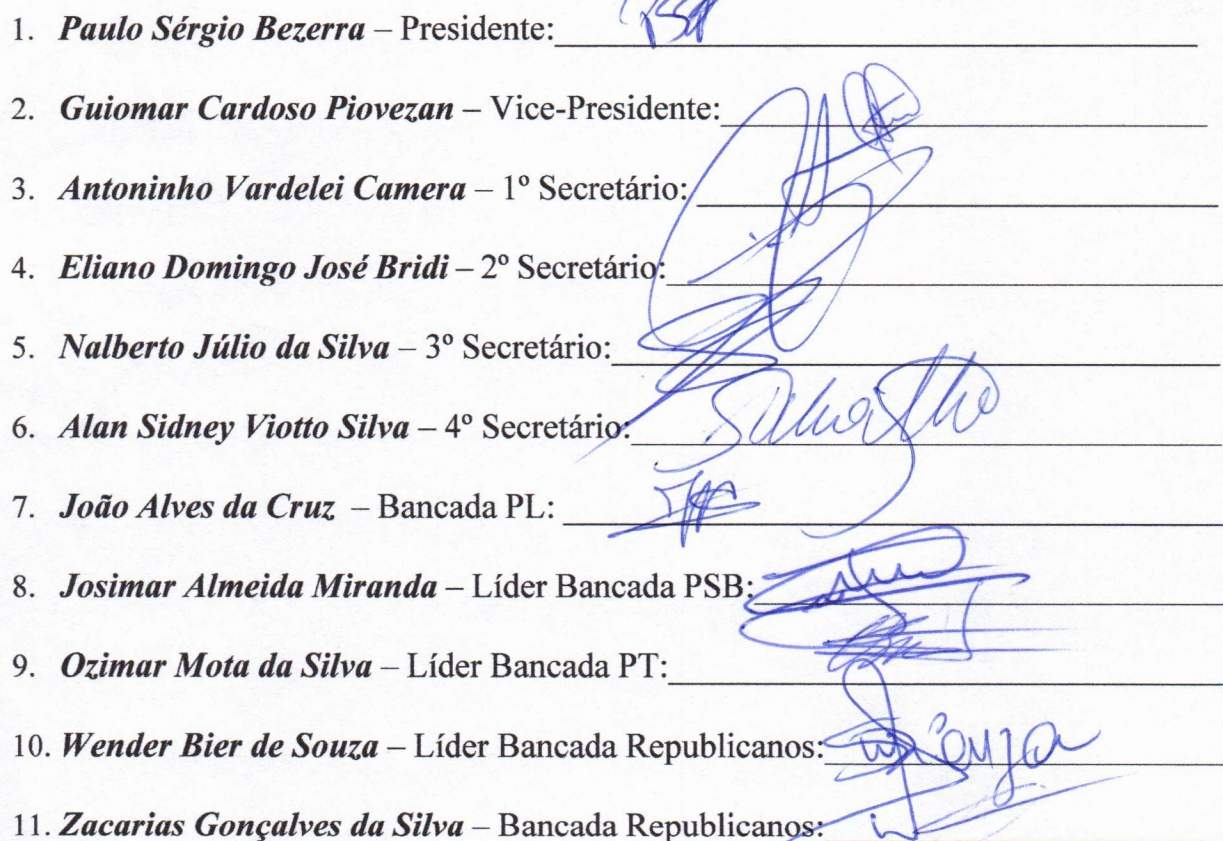 1. Paulo Sérgio Bezerra – Presidente:
2. Guiomar Cardoso Piovezan – Vice-Presidente:
3. Antoninho Vardelei Camera – 1º Secretário:
4. Eliano Domingo José Bridi – 2º Secretário:
5. Nalberto Júlio da Silva – 3º Secretário:
6. Alan Sidney Viotto Silva – 4º Secretário:
7. João Alves da Cruz – Bancada PL:
8. Josimar Almeida Miranda – Líder Bancada PSB:
9. Ozimar Mota da Silva – Líder Bancada PT:
10. Wender Bier de Souza – Líder Bancada Republicanos: Souza
11. Zacarias Gonçalves da Silva – Bancada Republicanos: